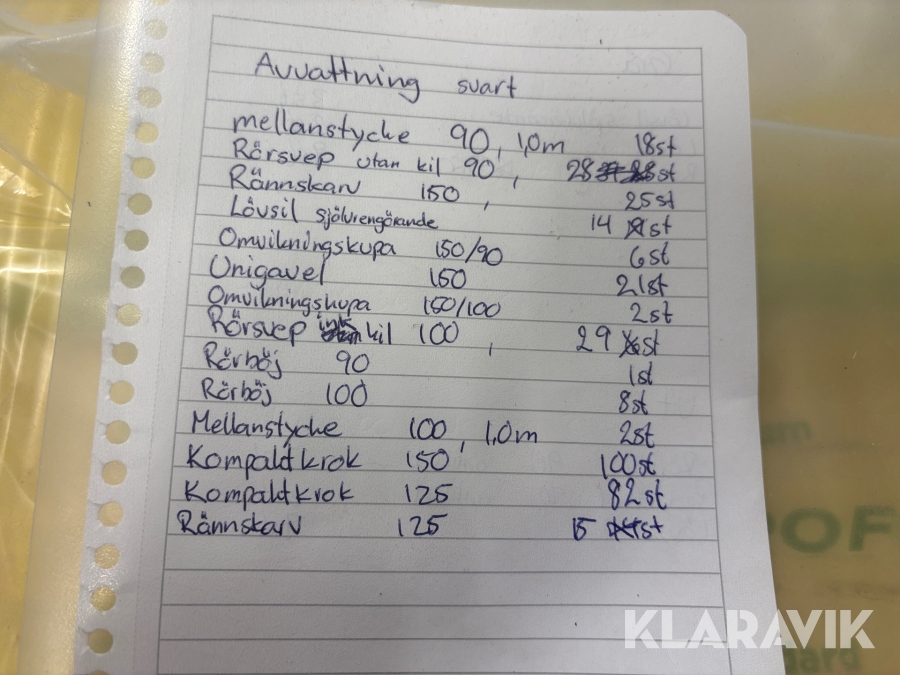 Avvattning svart
mellanstycke 90, 1,0m 18st
Rörsvep utan kil 90, 28 st
Rännskarv 150, 25st
Lövsil självrengörande 14 st
Omvikningskupa 150/90 6st
Unigavel 150 21st
Omvikningskupa 150/100 2st
Rörsvep kil 100, 29 st
Rörböj 90 1st
Rörböj 100 8st
Mellanstycke 100, 1,0m 2st
Kompaktkrok 150 100st
Kompaktkrok 125 82st
Rännskarv 125 15 st
KLARAVIK